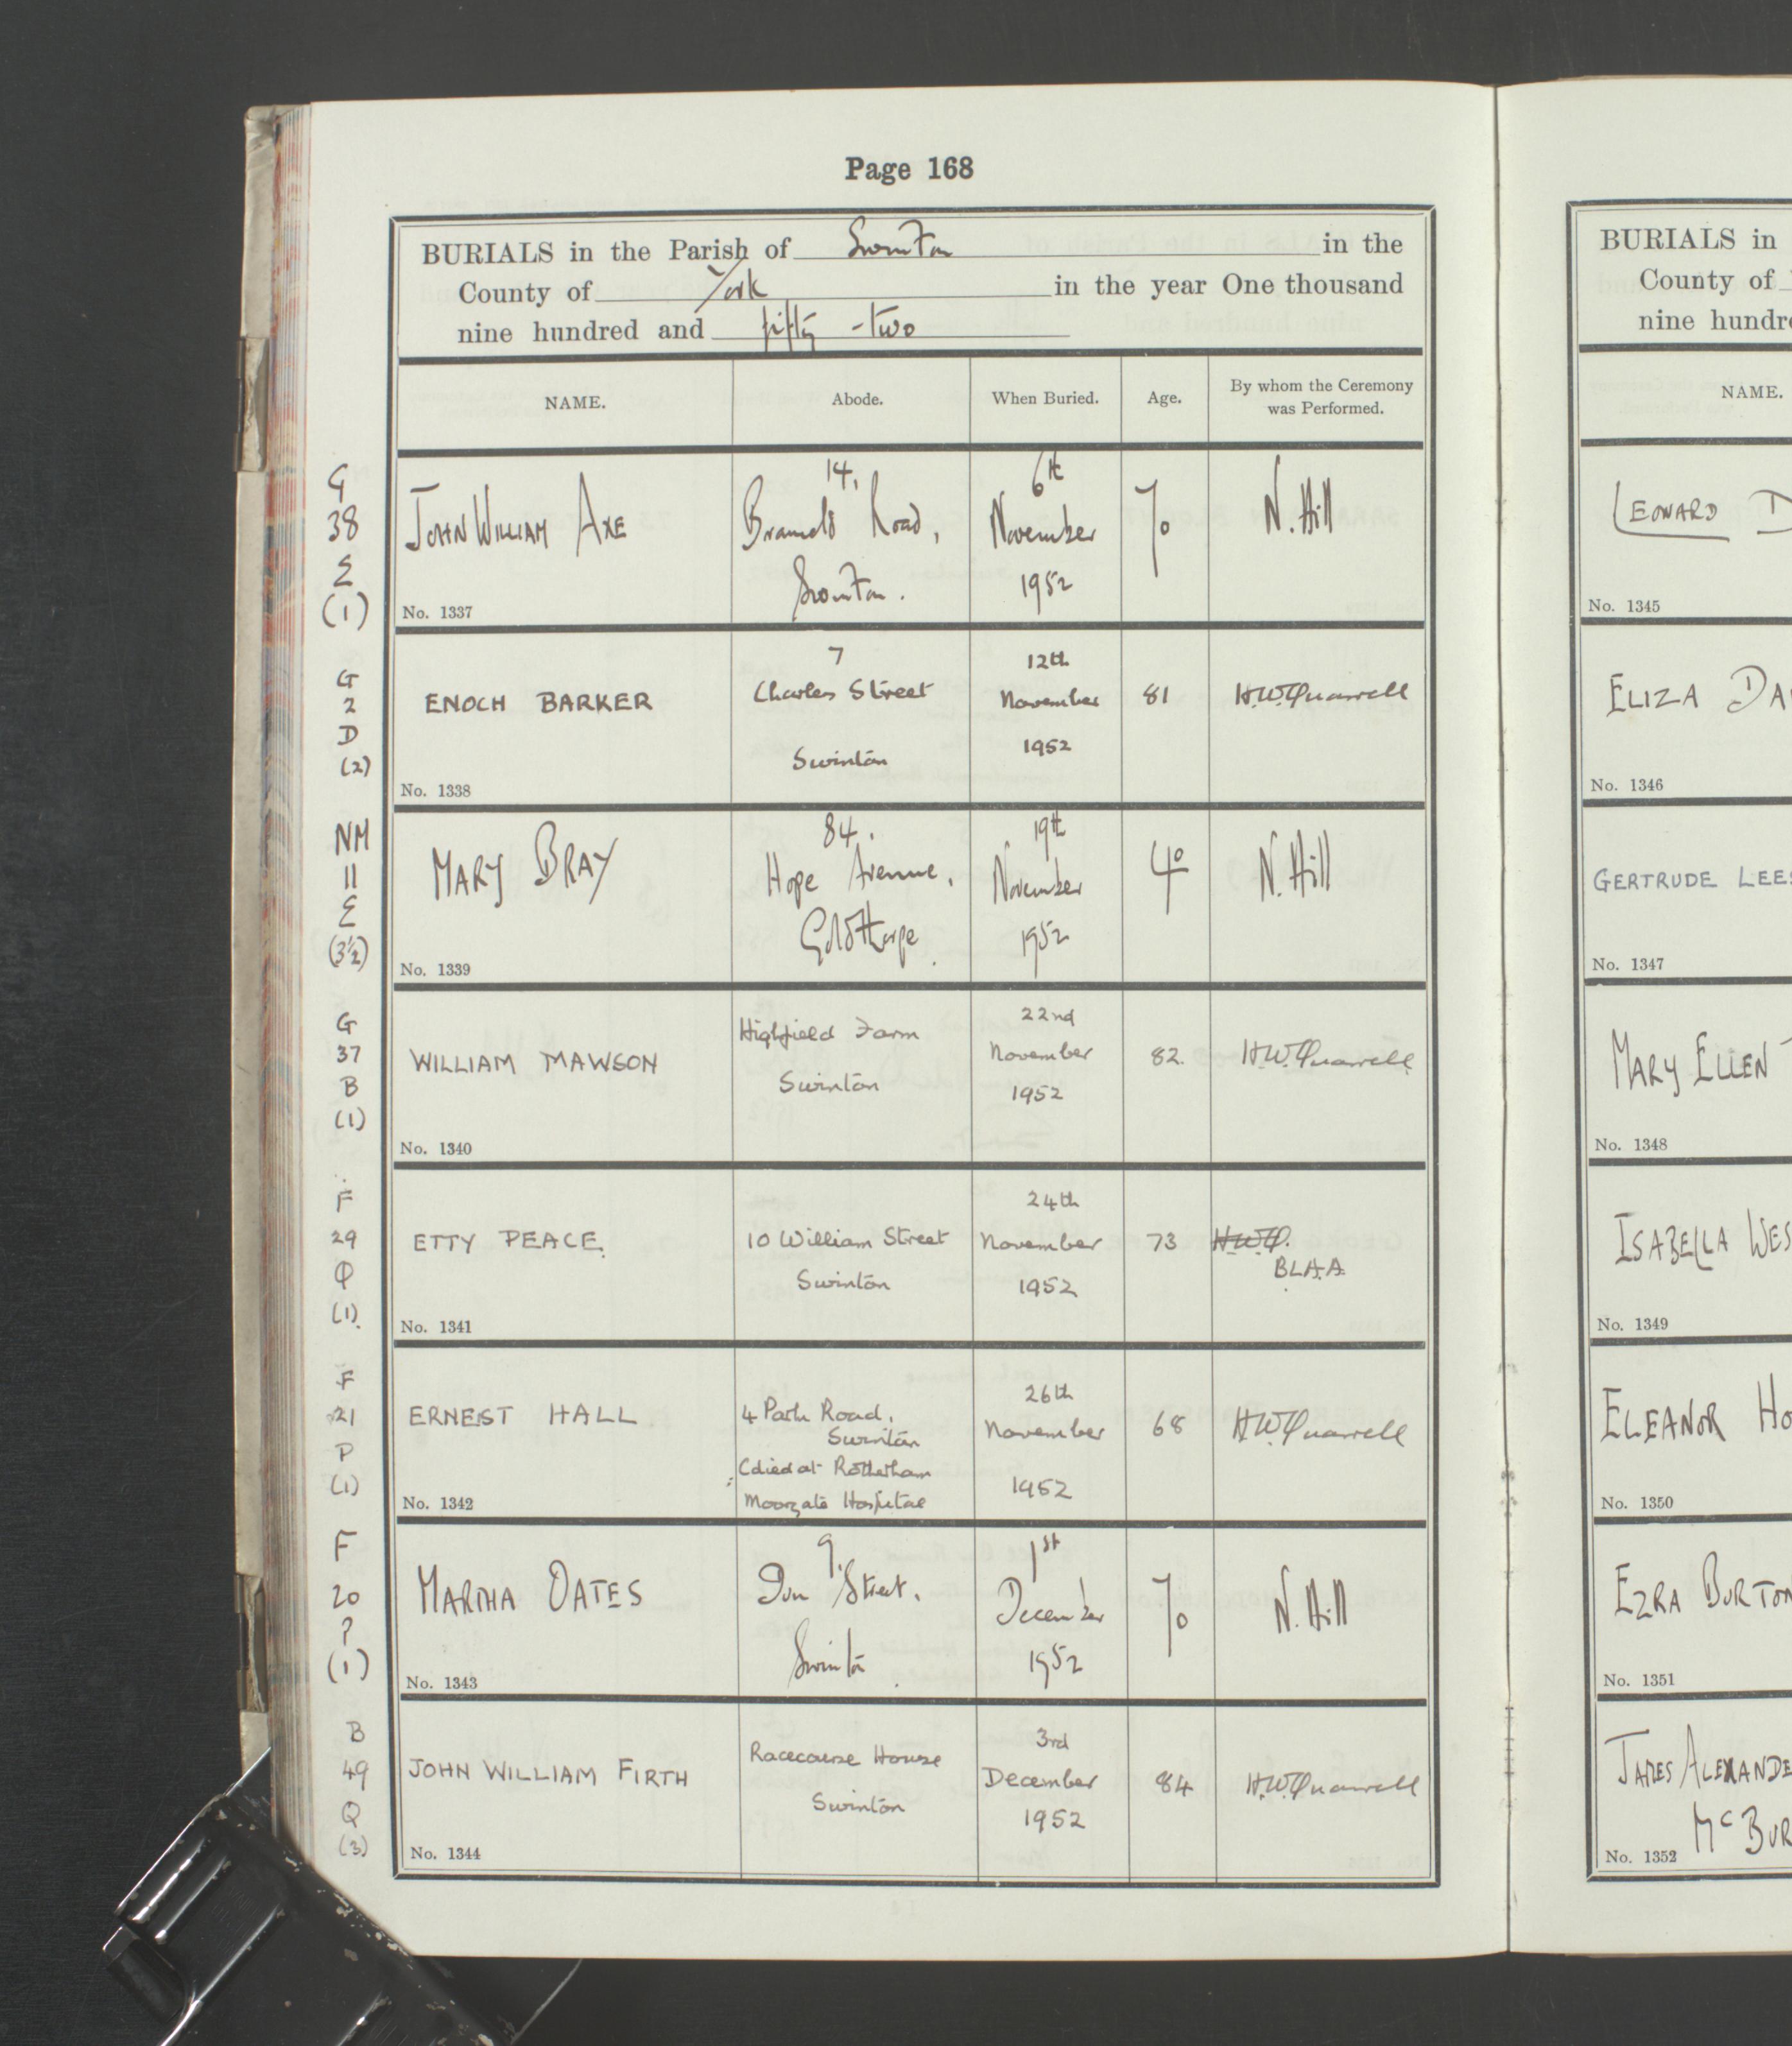 Page 168
BURIALS in the Parish of Swinton in the
County of York in the year One thousand
nine hundred and fifty-two
NAME. Abode. When Buried. Age. By whom the Ceremony was Performed.
G
38
E
(1)
JOHN WILLIAM AXE
No. 1337
14,
Bramold Road,
Swinton.
6th
November
1952
70
N. Hill
G
2
D
(2)
ENOCH BARKER
No. 1338
7
Charles Street
Swinton
12th
November
1952
81
H.W. Quarrell
NM
11
E
(3½)
MARY BRAY
No. 1339
84.
Hope Avenue,
Goldthorpe.
19th
November
1952
40
N. Hill
G
37
B
(1)
WILLIAM MAWSON
No. 1340
Highfield Farm
Swinton
22nd
November
1952
82.
H.W. Quarrell
F
29
Q
(1).
ETTY PEACE.
No. 1341
10 William Street
Swinton
24th
November
1952
73
H.W.Q.
B.L.A.A.
F
21
P
(1)
ERNEST HALL
No. 1342
4 Park Road,
Swinton
(died at Rotherham
Moorgate Hospital
26th
November
1952
68
H.W. Quarrell
F
20
P
(1)
MARTHA OATES
No. 1343
9,
Don Street,
Swinton.
1st
December
1952
70
N. Hill
B
49
Q
(3)
JOHN WILLIAM FIRTH
No. 1344
Racecourse House
Swinton
3rd
December
1952
84
H.W. Quarrell
BURIALS in
County of
nine hundre
NAME.
LEONARD D
No. 1345
ELIZA DA
No. 1346
GERTRUDE LEES
No. 1347
MARY ELLEN
No. 1348
ISABELLA WES
No. 1349
ELEANOR HO
No. 1350
EZRA BURTON
No. 1351
JAMES ALEXANDE
McBUR
No. 1352